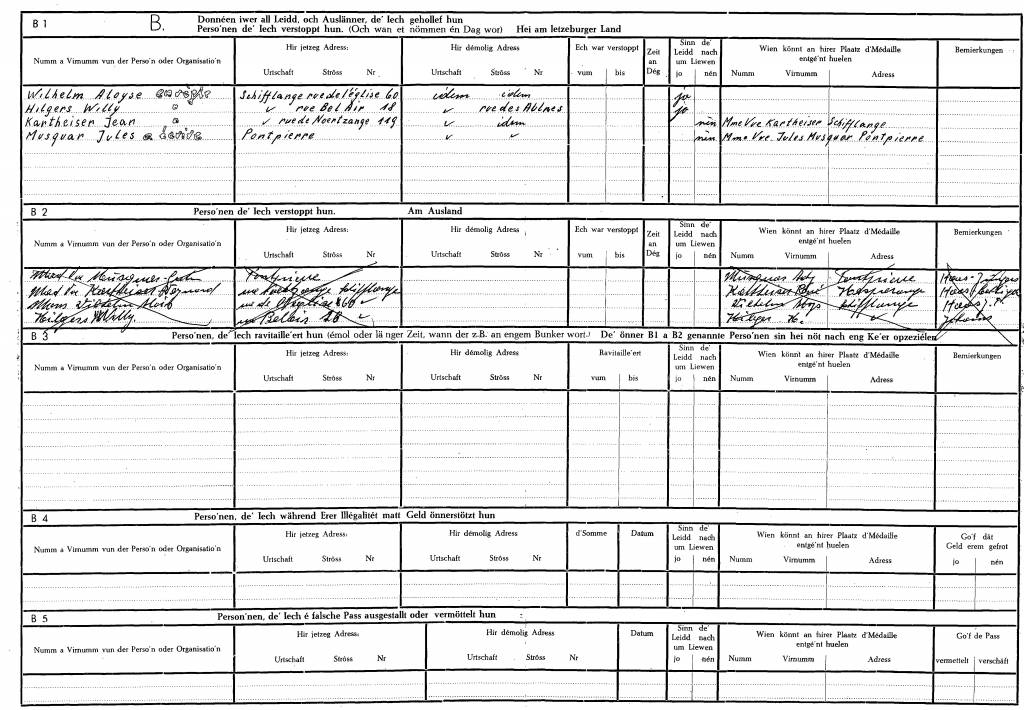 B 1 B. Donnéen iwer all Leidd, och Auslänner, de' Iech gehollef hun
Perso'nen de' Iech verstoppt hun. (Och wan et nömmen én Dag wor) Hei am letzeburger Land
Numm a Virnumm vun der Perso'n oder Organisatio'n
Hir jetzeg Adress:
Urtschaft Ströss Nr
Hir démolig Adress
Urtschaft Ströss Nr
Ech war verstoppt
vum bis
Zeit an Dég
Sinn de' Leidd nach um Liewen
jo nén
Wien könnt an hirer Plaatz d'Médaille
entgé'nt huelen
Numm Virnumm Adress
Bemierkungen
Wilhelm Aloyse Schifflange rue de l'église 60 idem idem jo
Hilgers Willy " ✓ rue Bel Air 18 ✓ rue des Ablmes jo
Kartheiser Jean " ✓ rue de Noertzange 119 ✓ idem nèn Mme Vve Kartheiser Schifflange
Musquar Jules Pontpierre ✓ ✓ nèn Mme Vve. Jules Musquar Pontpierre
B 2 Perso'nen de' Iech verstoppt hun. Am Ausland
Numm a Virnumm vun der Perso'n oder Organisatio'n
Hir jetzeg Adress:
Urtschaft Ströss Nr
Hir démolig Adress
Urtschaft Ströss Nr
Ech war verstoppt
vum bis
Zeit an Dég
Sinn de' Leidd nach um Liewen
jo nén
Wien könnt an hirer Plaatz d'Médaille
entgé'nt huelen
Numm Virnumm Adress
Bemierkungen
Pontpierre Pontpierre
Schifflange
60 ✓ Schifflange
Hilgers Willy Belair 18 ✓ ✓
B 3 Perso'nen, de' Iech ravitaille'ert hun (émol oder lä nger Zeit, wann der z.B. an engem Bunker wort.) De' önner B1 a B2 genannte Perso'nen sin hei nöt nach eng Ke'er opzeziélen
Numm a Virnumm vun der Perso'n oder Organisatio'n
Hir jetzeg Adress:
Urtschaft Ströss Nr
Hir démolig Adress
Urtschaft Ströss Nr
Ravitaille'ert
vum bis
Sinn de' Leidd nach um Liewen
jo nén
Wien könnt an hirer Plaatz d'Médaille
entgé'nt huelen
Numm Virnumm Adress
Bemierkungen
B 4 Perso'nen, de' Iech während Erer Illégalitét matt Geld önnerstötzt hun
Numm a Virnumm vun der Perso'n oder Organisatio'n
Hir jetzeg Adress:
Urtschaft Ströss Nr
Hir démolig Adress
Urtschaft Ströss Nr
d'Somme
Datum
Sinn de' Leidd nach um Liewen
jo nén
Wien könnt an hirer Plaatz d'Médaille
entgé'nt huelen
Numm Virnumm Adress
Go'f dät
Geld erem gefrot
jo nén
B 5 Person'nen, de' Iech é falsche Pass ausgestallt oder vermöttelt hun :
Numm a Virnumm vun der Perso'n oder Organisatio'n
Hir jetzeg Adress:
Urtschaft Ströss Nr
Hir démolig Adress
Urtschaft Ströss Nr
Datum
Sinn de' Leidd nach um Liewen
jo nén
Wien könnt an hirer Plaatz d'Médaille
entgé'nt huelen
Numm Virnumm Adress
Go'f de Pass
vermettelt verschäft